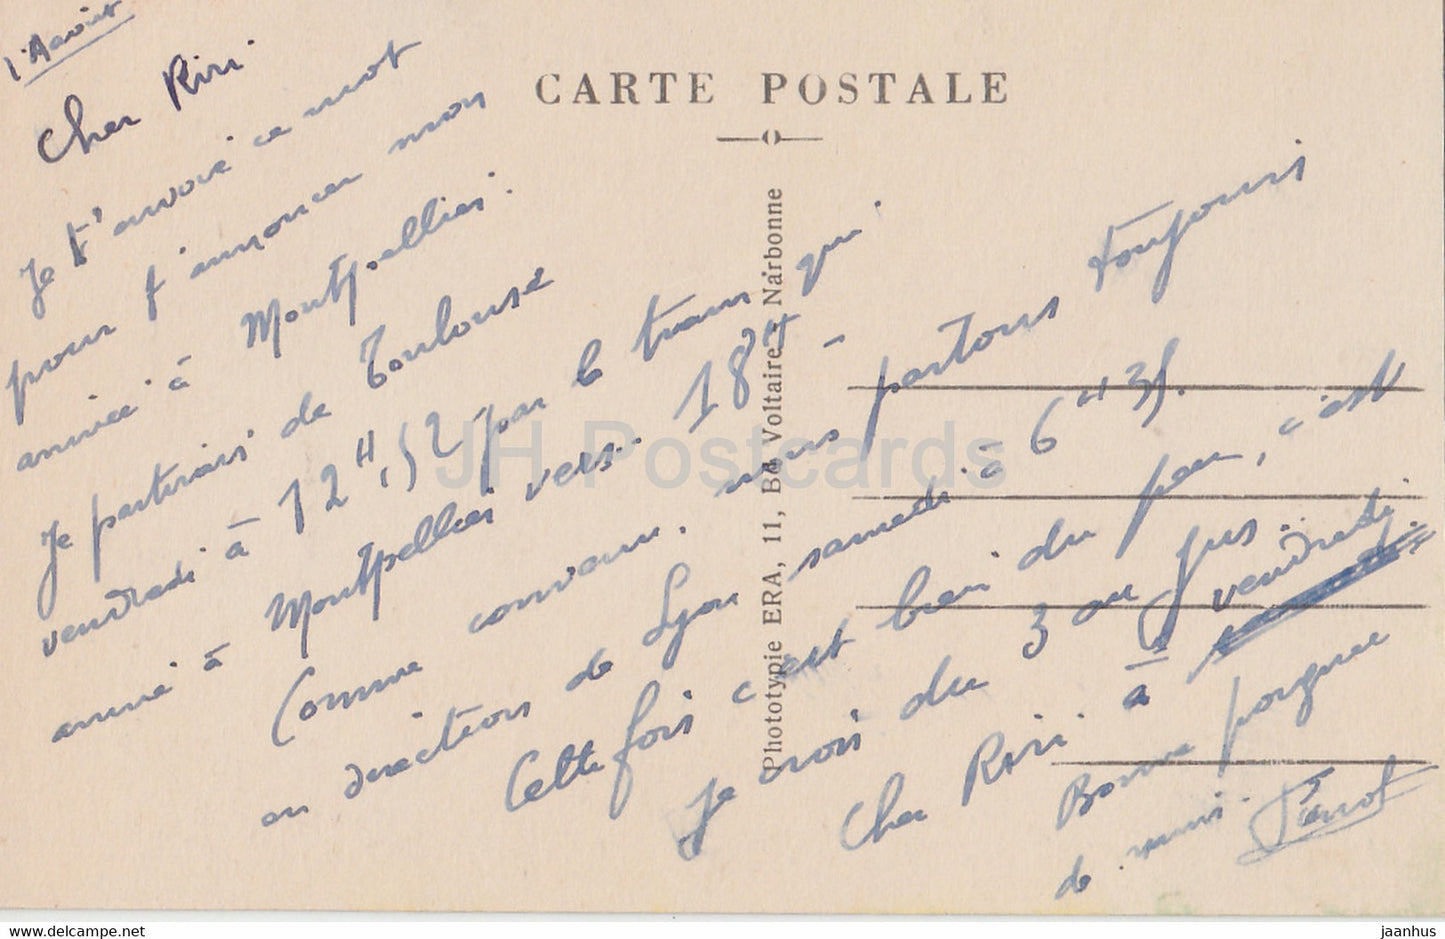 CARTE POSTALE
Phototypie ERA, 11, Bd Voltaire, Narbonne
Cher Riri.
Je t'envoie ce mot
pour t'annoncer mon
arrivée à Montpellier.
Je partirais de Toulouse
vendredi à 12H,52 par le train qui
arrive à Montpellier vers.. 18H –
Comme convenu. nous partons toujours
en direction de Lyon samedi à 6H35.
Cette fois c'est bien du peu, c'est
Je crois du 3 au jus..
Cher Riri. à vendredi
Bonne poignée
de mini.
JH Postcards
www.hippostcard.com
jaanhus